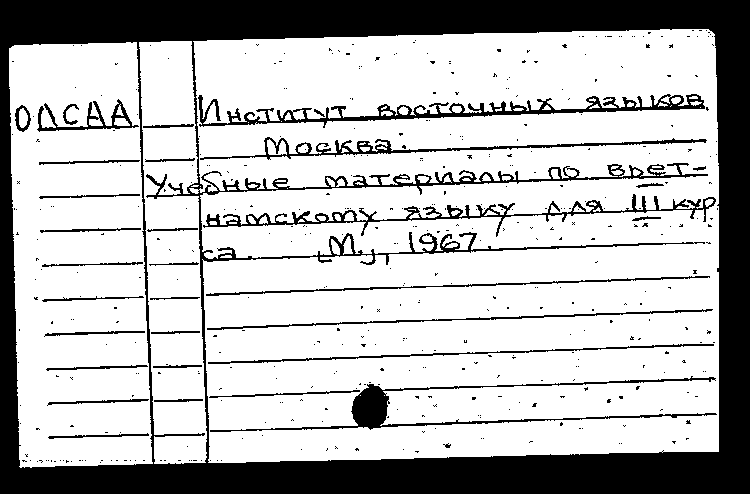 ОЛСАА Институт восточных языков
Москва.
Учебные материалы по вьет-
намскому языку для III кур
са. [М.], 1967.